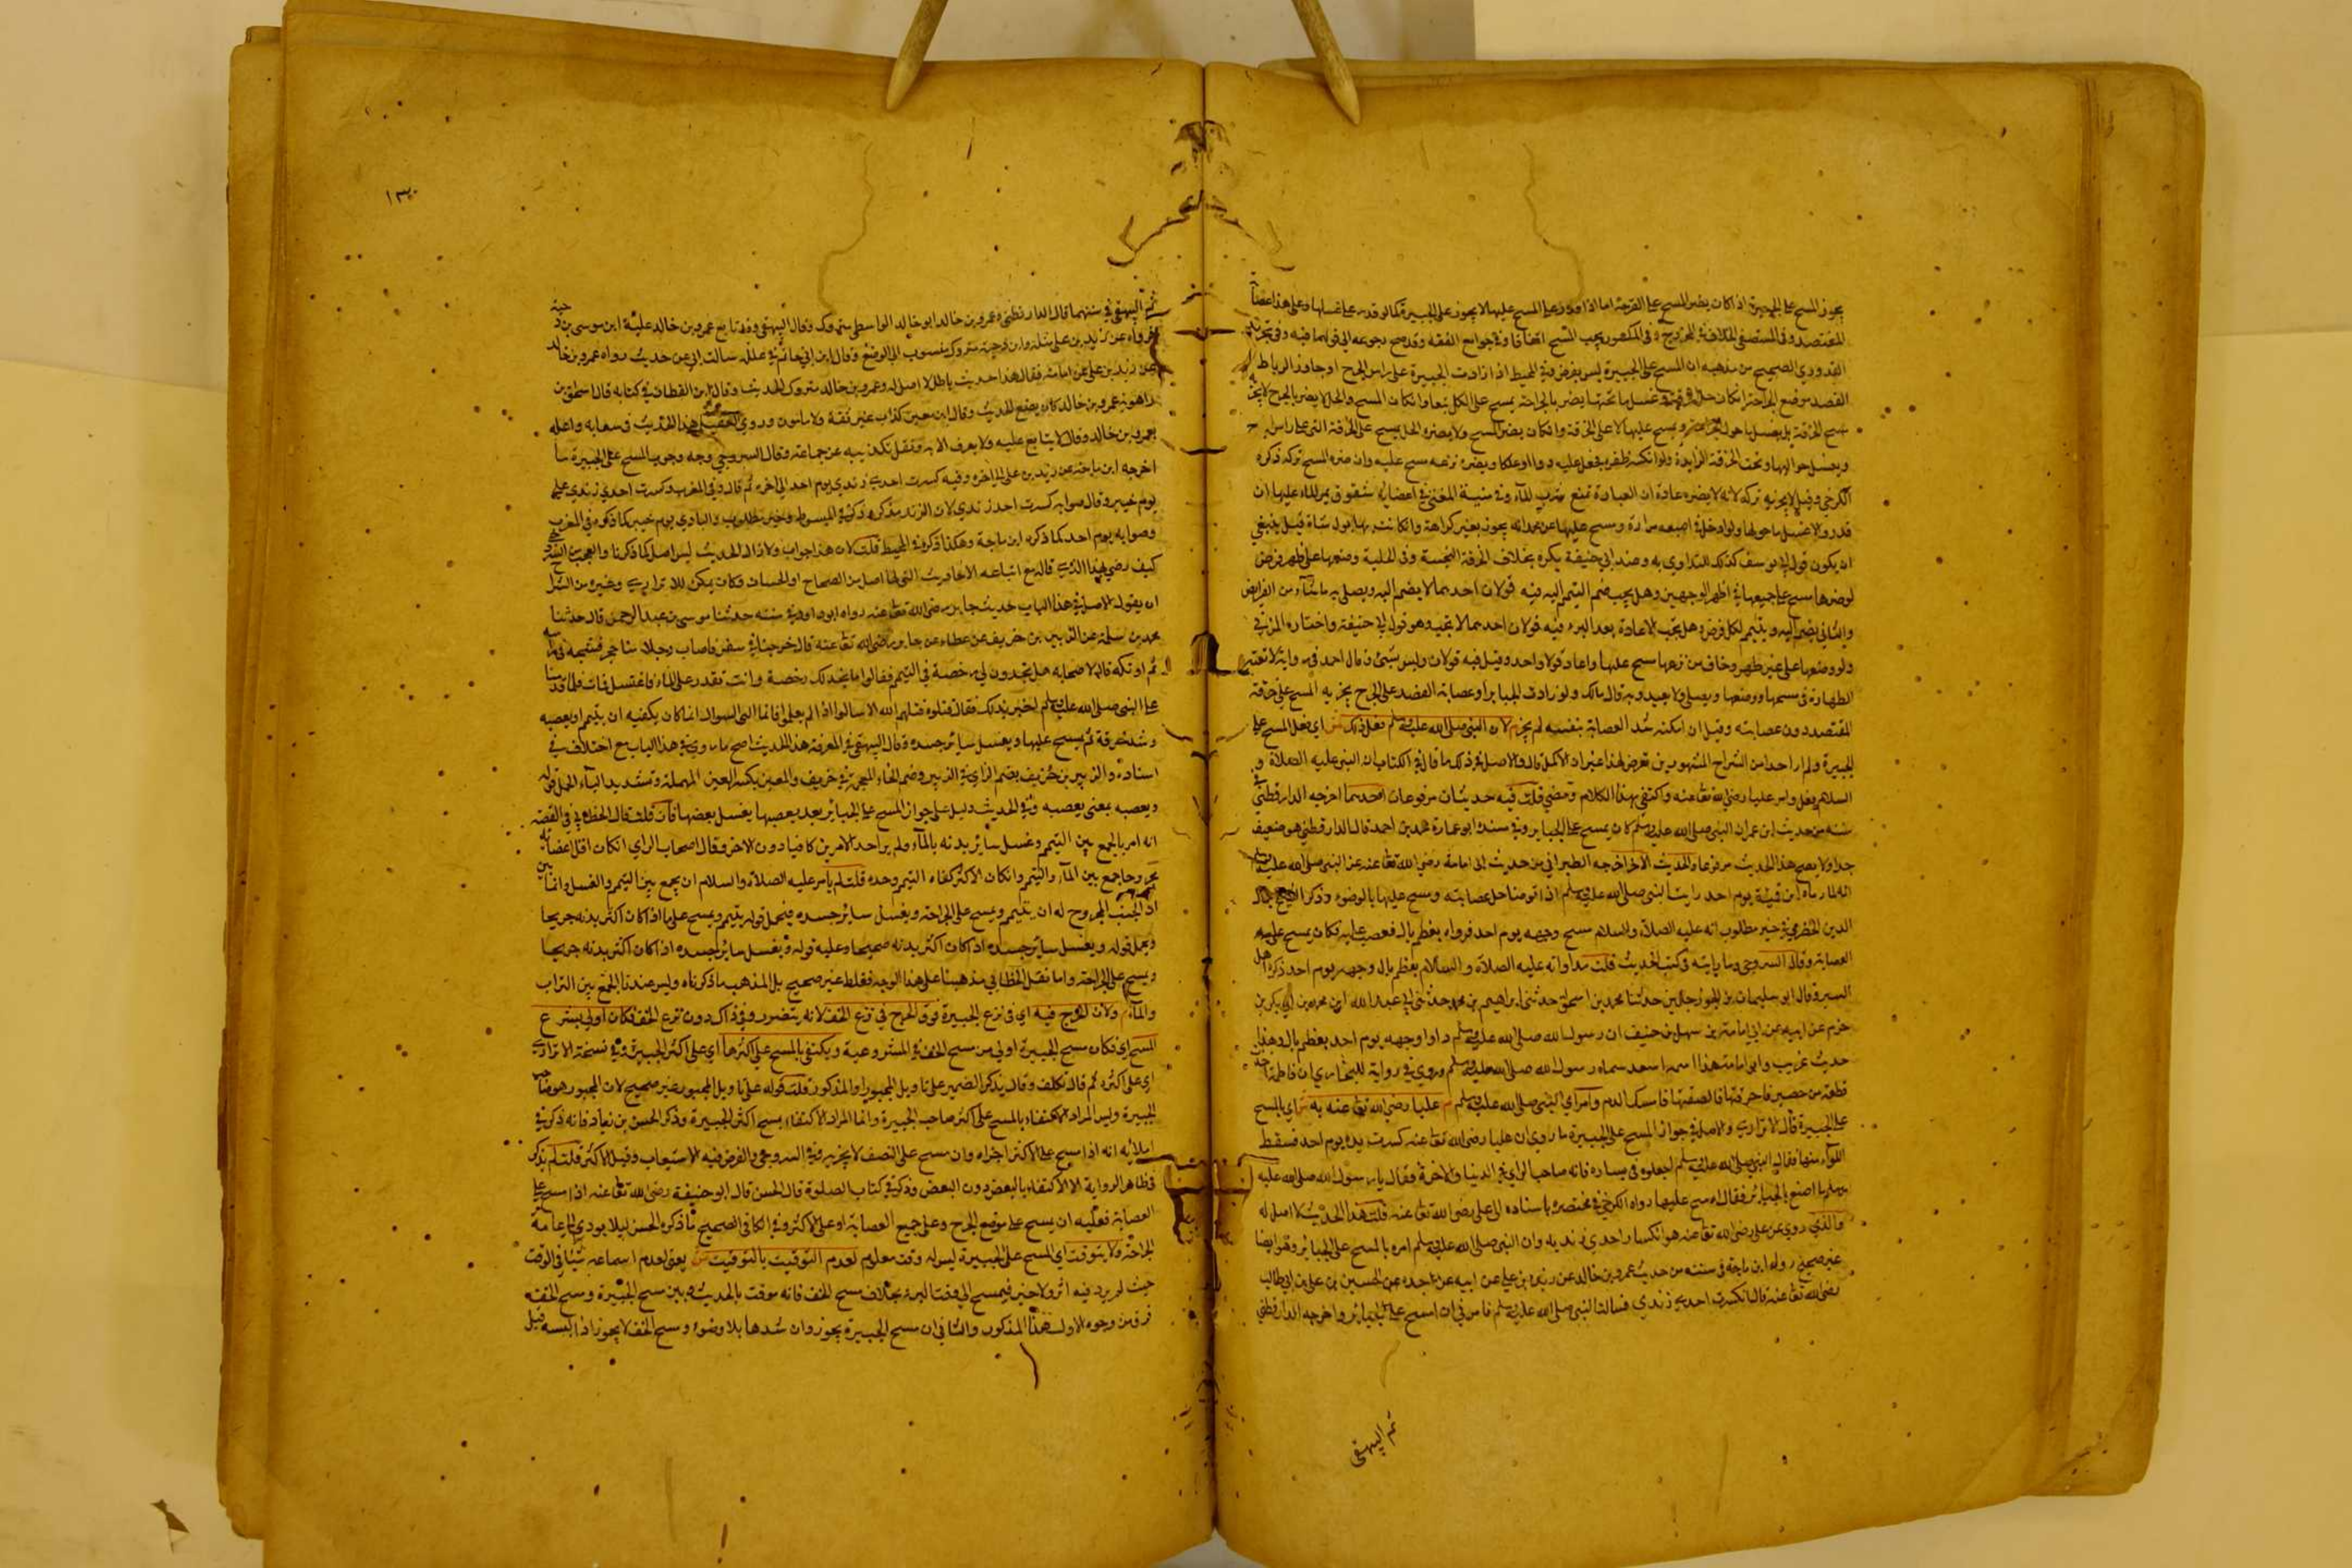 يجوز المسح على الجبيرة اذا كان يضر المسح على القرحة اما اذا قدر على المسح عليها لا يجوز على الجبيرة كما لو قدر على غسلها وعلى هذا عصابة
المقتصد وفي المستصفى الخلاف في المجروح وفي المكسور يجب المسح اتفاقا وفي جوامع الفقه وقد صح رجوعه الى قولهما فيه وفي تجريد
القدوري الصحيح من مذهبه ان المسح على الجبيرة ليس بفرض وفي المحيط اذا زادت الجبيرة على راس الجرح او جاوز الرباط
القصد موضع الجراحة ان كان حل الخرقة وغسل ما تحتها يضر بالجراحة يمسح على الكل تبعا وان كان المسح والحل لا يضر بالجرح لا يجزيه
مسح الخرقة بل يغسل ما حول الجراحة ويمسح عليها لا على الخرقة وان كان يضر المسح ولا يضره الحل يمسح على الخرقة التي على راس الجرح
ويغسل حواليها وتحت الخرقة الزايدة ولو انكسر ظفره فجعل عليه دواء او علكا ويضره نزعه مسح عليه وان ضره المسح تركه ذكره
الكرخي وقيل لا يجزيه تركه لانه لا يضره عادة ان العبادة تمنع شرب الماء وفي منية المفتي في اعضايه شقوق يمر الماء عليها ان
قدر والا غسل ما حولها ولو ادخل في اصبعه مرارة ومسح عليها عن محمد انه يجوز بغير كراهة وان كانت بها بول شاة قيل ينبغي
ان يكون قول ابي يوسف كذلك للتداوي به وعند ابي حنيفة يكره بخلاف الخرقة النجسة وفي الحلية وضعها على طهر وفرض
لوضرها مسح على جميعها في اظهر الوجهين وهل يجب ضم التيمم اليه فيه قولان احدهما لا يضم اليه ويصلي به ما شاء من الفرايض
والثاني يضم اليه ويتيمم لكل فرض وهل يجب الاعادة بعد البرء فيه قولان احدهما لا يجب وهو قول ابي حنيفة واختاره المزني
ولو وضعها على غير طهر وخاف من نزعها مسح عليها واعاد قولا واحدا وقيل فيه قولان وليس بشئ وقال احمد في رواية لا تعتبر
الطهارة في مسحها ووضعها ويصلي ولا يعيد وبه قال مالك ولو زادت الجباير او عصابة الفصد على الجرح يجزيه المسح على خرقة
المفتصد دون عصابته وقيل ان امكنه شد العصابة بنفسه لم يجز م لان النبي صلى الله عليه وسلم فعل ذلك ش اي فعل المسح على
الجبيرة ولم ار احدا من الشراح المشهورين تعرض لهذا غير ان الاكمل قال والاصل في ذلك ما قال في الكتاب ان النبي عليه الصلاة و
السلام فعل وامر عليا رضي الله تعا عنه واكتفى بهذا الكلام ومضى قلت فيه حديثان مرفوعان احدهما اخرجه الدارقطني في
سننه من حديث ابن عمر ان النبي صلى الله عليه وسلم كان يمسح على الجباير وفي سنده ابو عمارة محمد بن احمد قال الدارقطني هو ضعيف
جدا ولا يصح هذا الحديث مرفوعا والحديث الآخر اخرجه الطبراني من حديث ابي امامة رضي الله تعا عنه عن النبي صلى الله عليه وسلم
انه لما رماه ابن قميئة يوم احد رايت النبي صلى الله عليه وسلم اذا توضا حل عصابته ومسح عليها بالوضوء وذكر الشيخ جلال
الدين الخضرمي في خير مطلوب انه عليه الصلاة والسلام مسح وجهه يوم احد فرواه بعظم بال فعصب عليه فكان يمسح على
العصابة وقال السروجي وما رايته في كتب الحديث قلت مداواته عليه الصلاة والسلام بعظم بال وجهه يوم احد ذكره اهل
السير وقال ابو سليمان بن الجوزجاني حدثنا محمد بن اسحق حدثني ابراهيم بن محمد حدثني ابي عبد الله ابن محمد بن ابي بكر بن
حزم عن ابيه عن ابي امامة بن سهل بن حنيف ان رسول الله صلى الله عليه وسلم داوا وجهه يوم احد بعظم بال وهذا
حديث غريب وابو امامة هذا اسمه اسعد سماه رسول الله صلى الله عليه وسلم وروي في رواية للبخاري ان فاطمة اخذت
قطعة من حصير فاحرقتها فالصقتها فامسك الدم وامر اي النبي صلى الله عليه وسلم م عليا رضي الله تعا عنه به ش اي بالمسح
على الجبيرة قال الاترازي والاصل في جواز المسح على الجبيرة ما روي ان عليا رضي الله تعا عنه كسرت يده يوم احد فسقط
اللواء منها فقال النبي صلى الله عليه وسلم اجعلوه في يساره فانه صاحب لوائي في الدنيا والاخرة فقال يا رسول الله صلى الله عليه
وسلم ما اصنع بالجبائر فقال امسح عليها رواه الكرخي في مختصره باسناده الى علي رضي الله تعا عنه قلت هذا الحديث لا اصل له
والذي روي عن علي رضي الله تعا عنه هو انكسار احدى زنديه وان النبي صلى الله عليه وسلم امره بالمسح على الجبائر وهو ايضا
غير صحيح رواه ابن ماجة في سننه من حديث عمرو بن خالد عن زيد بن علي عن ابيه عن جده عن الحسين بن علي بن ابي طالب
رضي الله تعا عنه قال انكسرت احدى زندي فسالت النبي صلى الله عليه وسلم فامرني ان امسح على الجبائر واخرجه الدارقطني
ثم البيهقي
١٣٠
ثم البيهقي في سننهما قال الدارقطني وعمرو بن خالد ابو خالد الواسطي متروك وقال البيهقي وقد تابع عمرو بن خالد عليه ابن موسى بن دحية
فرواه عن زيد بن علي مثله وابن دحية متروك منسوب الى الوضع وقال ابن ابي حاتم في علله سالت ابي عن حديث رواه عمرو بن خالد
عن زيد بن علي عن ابائه فقال هذا حديث باطل لا اصل له وعمرو بن خالد متروك الحديث وقال ابن القطان في كتابه قال اسحق بن
راهويه عمرو بن خالد كان يضع الحديث وقال ابن معين كذاب غير ثقة ولا مامون وروي العقيلي هذا الحديث في ضعفايه واعله
بعمرو بن خالد وقال لا يتابع عليه ولا يعرف الا به ونقل تكذيبه عن جماعة وقال السروجي وجه وجوب المسح على الجبيرة ما
اخرجه ابن ماجة عن زيد بن علي الى اخره وفيه كسرت احدى زندي يوم احد الى اخره ثم قال وفي المغرب وكسرت احدى زندي علي
يوم خيبر وقال صوابه كسرت احد زندي لان الزند مذكر وذكر في المبسوط وخير مطلوب والباوي يوم خيبر كما ذكره في المغرب
وصوابه يوم احد كما ذكره ابن ماجة وهكذا ذكره في المحيط قلت لان هذا جواب ولا ذاك الحديث ليس له اصل كما ذكرنا والعجب من الشيخ
كيف رضي بهذا الذي قاله مع اتباعه الاحاديث التي لها اصل من الصحاح او الحسان وكان يمكن للاترازي وغيره من الشراح
ان يقول الاصل في هذا الباب حديث جابر رضي الله تعا عنه رواه ابو داود في سننه حدثنا موسى بن عبد الرحمن قال حدثنا
محمد بن سلمة عن الزبير بن خريق عن عطاء عن جابر رضي الله تعا عنه قال خرجنا في سفر فاصاب رجلا منا حجر فشجه في راسه
ثم احتلم فقال لاصحابه هل تجدون لي رخصة في التيمم فقالوا ما نجد لك رخصة وانت تقدر على الماء فاغتسل فمات فلما قدمنا
على النبي صلى الله عليه وسلم اخبر بذلك فقال قتلوه قتلهم الله الا سالوا اذا لم يعلموا فانما شفاء العي السوال انما كان يكفيه ان يتيمم ويعصب
وشد خرقة ثم يمسح عليها ويغسل سائر جسده وقال البيهقي في المعرفة هذا الحديث اصح ما روي في هذا الباب مع اختلاف في
اسناده والزبير بن خريق بضم الزاي في الزبير وضم الخاء المعجمة في خريق والمعين بكسر العين المهملة وتشديد الياء الجهل قوله
ويعصبه بمعنى يعصبه وفي الحديث دليل على جواز المسح على الجبائر بعد يعصبها يغسل بعضها فان قلت قال الخطابي في القصة
انه امر بالجمع بين التيمم وغسل سائر بدنه بالماء ولم ير احد الامرين كافيا دون الاخر وقال اصحاب الراي ان كان اقل اعضائه
مجروحا جمع بين الماء والتيمم وان كان الاكثر كفاه التيمم وحده قلت لم يامر عليه الصلاة والسلام ان يجمع بين التيمم والغسل وانما بين
ان الجنب المجروح له ان يتيمم ويمسح على الجراحة ويغسل سائر جسده فيحمل قوله يتيمم ويمسح على ما اذا كان اكثر بدنه جريحا
ويحمل قوله ويغسل سائر جسده اذا كان اكثر بدنه صحيحا وعليه قوله ويغسل سائر جسده اذا كان اكثر بدنه جريحا
ويمسح على الجراحة واما نقل الخطابي مذهبنا على هذا الوجه فغلط غير صحيح بل المذهب ما ذكرناه وليس عندنا الجمع بين التراب
والماء م ولان الحرج فيه اي في نزع الجبيرة فوق الحرج في نزع الخف لانه يتضرر في ذاك دون نزع الخف فكان اولى بشرع
المسح اي فكان مسح الجبيرة اولى من مسح الخف في المشروعية ويكتفي بالمسح على اكثرها اي على اكثر الجبيرة وفي نسخة الاترازي
اي على اكثره ثم قال تكلف وقال يذكر الضمير على تاويل المجبور او المذكور قلت قوله على تاويل المجبور غير صحيح لان المجبور هو صاحب
الجبيرة وليس المراد الاكتفاء بالمسح على اكثر صاحب الجبيرة وانما المراد الاكتفاء بمسح اكثر الجبيرة وذكر الحسن بن زياد فانه ذكر في
املائه انه اذا مسح على الاكثر اجزاه وان مسح على النصف لا يجزيه وفي السروجي والفرض فيه الاستيعاب وقيل الاكثر قلت لم يذكر
في ظاهر الرواية الا الاكتفاء بالبعض دون البعض وذكر في كتاب الصلوة قال الحسن قال ابو حنيفة رضي الله تعا عنه اذا مسح على
العصابة فعليه ان يمسح على موضع الجرح وعلى جميع العصابة او على الاكثر وفي الكافي الصحيح ما ذكره الحسن ليلا يودي الى عامة
الجراحة ولا يتوقت اي المسح على الجبيرة ليس له وقت معلوم لعدم التوقيت بالتوقيت ش يعني لعدم اسماعه شيئا في الوقت
حيث لم يرد فيه اثر ولا خبر فيمسح الى وقت البرء بخلاف مسح الخف فانه موقت بالحديث وبين مسح الجبيرة ومسح الخف
فرق من وجوه الاول هذا المذكور والثاني ان مسح الجبيرة يجوز وان شدها بلا وضوء ومسح الخف لا يجوز اذا لبسه قبل